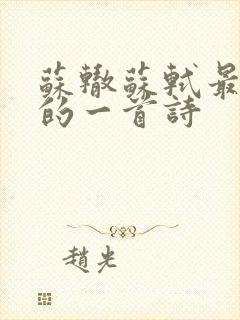 蘇轍蘇軾最
的一首詩
趙光